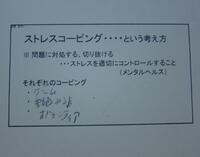 ストレスコーピング・・・・という考え方
※ 問題に対処する、切り抜ける
・・・ストレスを適切にコントロールすること
(メンタルヘルス)
それぞれのコーピング
・ゲーム
・ボランティア